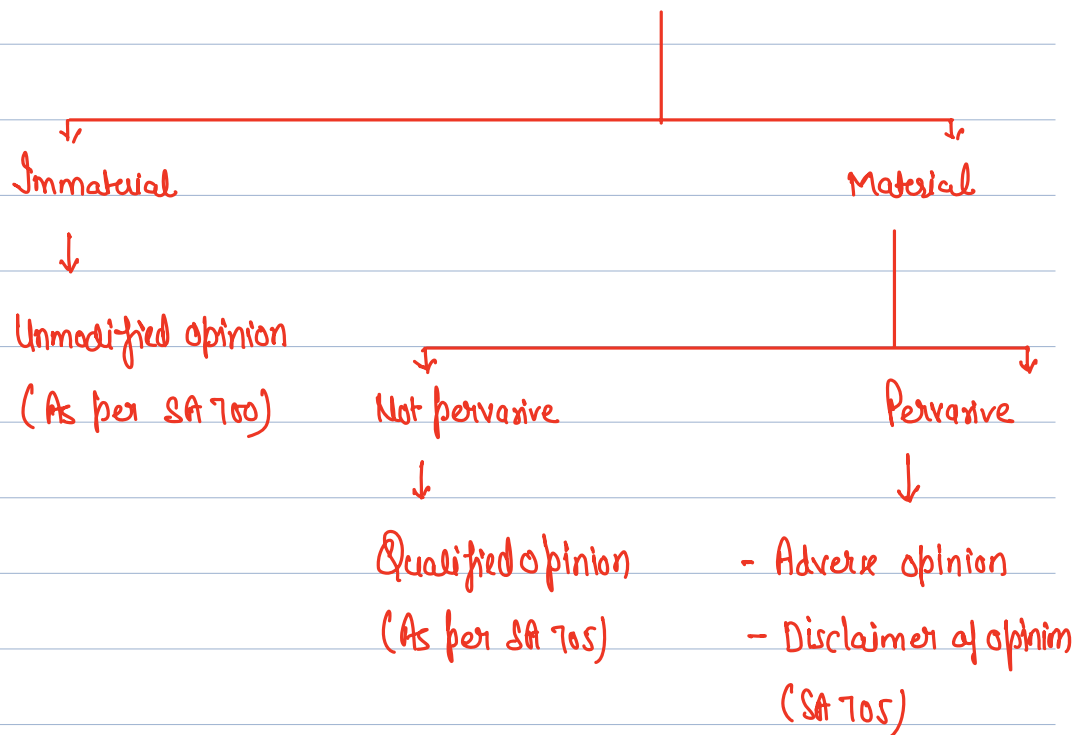 Immaterial
Material
Unmodified opinion
(As per SA 700)
Not pervasive
Pervasive
Qualified opinion
(As per SA 705)
- Adverse opinion
- Disclaimer of opinion
(SA 705)